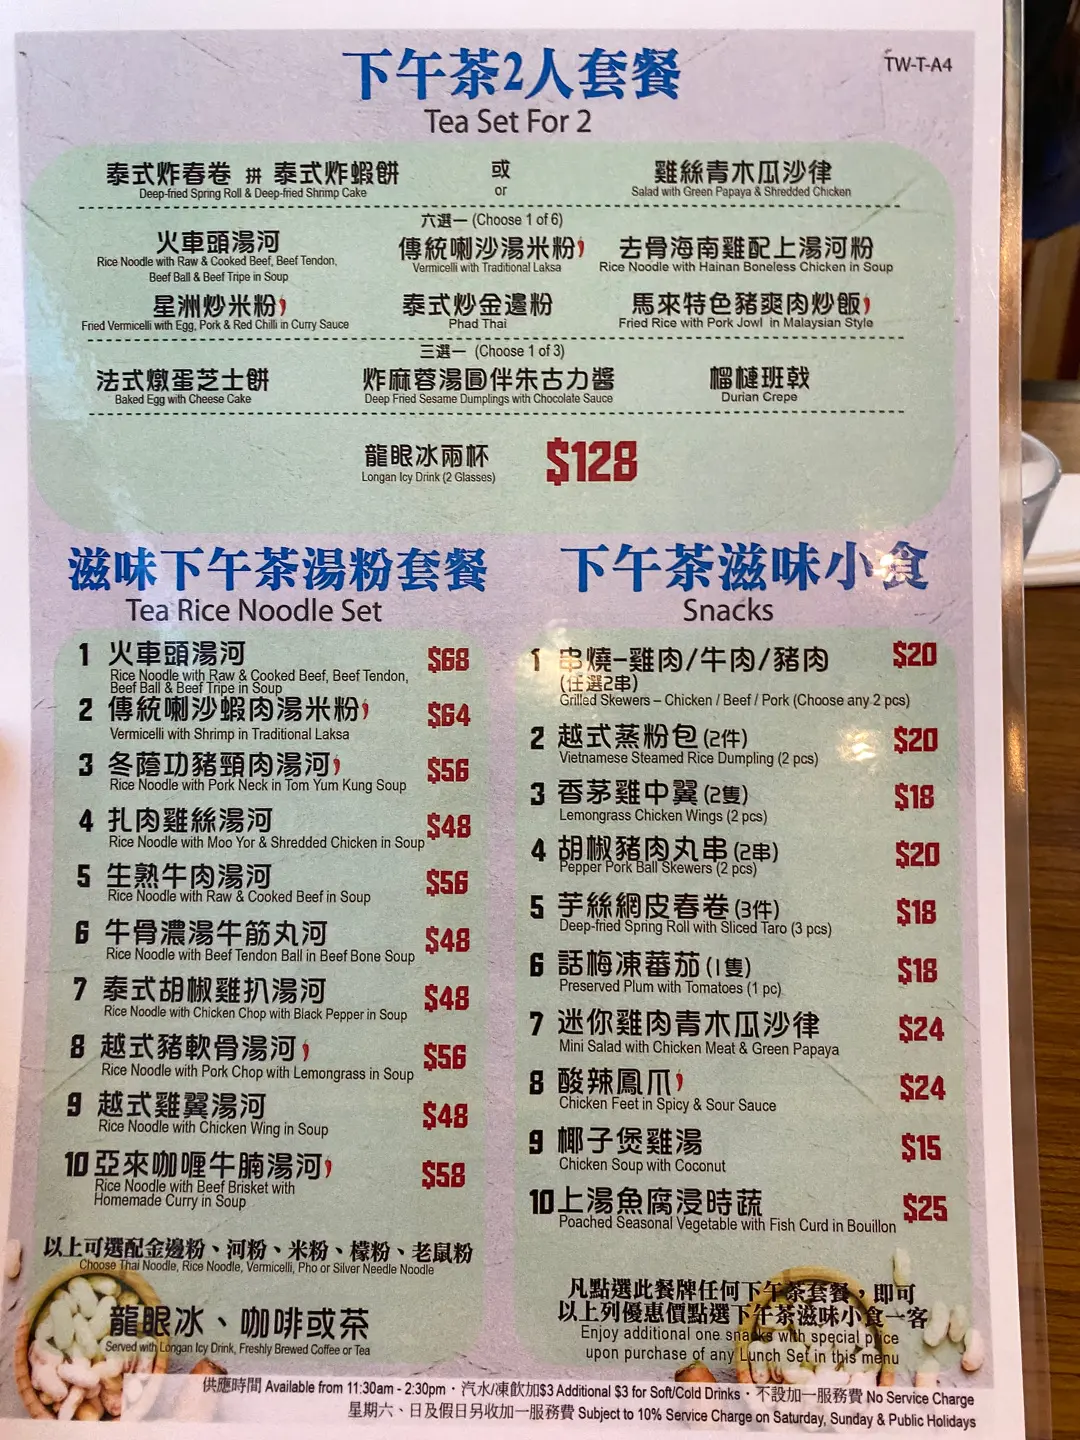 下午茶2人套餐
TW-T-A4
Tea Set For 2
泰式炸春卷 拼 泰式炸蝦餅
Deep-fried Spring Roll & Deep-fried Shrimp Cake
或
or
雞絲青木瓜沙律
Salad with Green Papaya & Shredded Chicken
六選一 (Choose 1 of 6)
火車頭湯河
Rice Noodle with Raw & Cooked Beef, Beef Tendon,
Beef Ball & Beef Tripe in Soup
傳統喇沙湯米粉
Vermicelli with Traditional Laksa
去骨海南雞配上湯河粉
Rice Noodle with Hainan Boneless Chicken in Soup
星洲炒米粉
Fried Vermicelli with Egg, Pork & Red Chilli in Curry Sauce
泰式炒金邊粉
Phad Thai
馬來特色豬爽肉炒飯
Fried Rice with Pork Jowl in Malaysian Style
三選一 (Choose 1 of 3)
法式燉蛋芝士餅
Baked Egg with Cheese Cake
炸麻蓉湯圓伴朱古力醬
Deep Fried Sesame Dumplings with Chocolate Sauce
榴槤班戟
Durian Crepe
龍眼冰兩杯
Longan Icy Drink (2 Glasses)
$128
滋味下午茶湯粉套餐
Tea Rice Noodle Set
1 火車頭湯河 $68
Rice Noodle with Raw & Cooked Beef, Beef Tendon,
Beef Ball & Beef Tripe in Soup
2 傳統喇沙蝦肉湯米粉 $64
Vermicelli with Shrimp in Traditional Laksa
3 冬蔭功豬頸肉湯河 $56
Rice Noodle with Pork Neck in Tom Yum Kung Soup
4 扎肉雞絲湯河 $48
Rice Noodle with Moo Yor & Shredded Chicken in Soup
5 生熟牛肉湯河 $56
Rice Noodle with Raw & Cooked Beef in Soup
6 牛骨濃湯牛筋丸河 $48
Rice Noodle with Beef Tendon Ball in Beef Bone Soup
7 泰式胡椒雞扒湯河 $48
Rice Noodle with Chicken Chop with Black Pepper in Soup
8 越式豬軟骨湯河 $56
Rice Noodle with Pork Chop with Lemongrass in Soup
9 越式雞翼湯河 $48
Rice Noodle with Chicken Wing in Soup
10 亞來咖喱牛腩湯河 $58
Rice Noodle with Beef Brisket with
Homemade Curry in Soup
以上可選配金邊粉、河粉、米粉、檬粉、老鼠粉
Choose Thai Noodle, Rice Noodle, Vermicelli, Pho or Silver Needle Noodle
龍眼冰、咖啡或茶
Served with Longan Icy Drink, Freshly Brewed Coffee or Tea
下午茶滋味小食
Snacks
1 串燒-雞肉/牛肉/豬肉 $20
(任選2串)
Grilled Skewers – Chicken / Beef / Pork (Choose any 2 pcs)
2 越式蒸粉包 (2件) $20
Vietnamese Steamed Rice Dumpling (2 pcs)
3 香茅雞中翼 (2隻) $18
Lemongrass Chicken Wings (2 pcs)
4 胡椒豬肉丸串 (2串) $20
Pepper Pork Ball Skewers (2 pcs)
5 芋絲網皮春卷 (3件) $18
Deep-fried Spring Roll with Sliced Taro (3 pcs)
6 話梅凍蕃茄 (1隻) $18
Preserved Plum with Tomatoes (1 pc)
7 迷你雞肉青木瓜沙律 $24
Mini Salad with Chicken Meat & Green Papaya
8 酸辣鳳爪 $24
Chicken Feet in Spicy & Sour Sauce
9 椰子煲雞湯 $15
Chicken Soup with Coconut
10 上湯魚腐浸時蔬 $25
Poached Seasonal Vegetable with Fish Curd in Bouillon
凡點選此餐牌任何下午茶套餐，即可
以上列優惠價點選下午茶滋味小食一客
Enjoy additional one snacks with special price
upon purchase of any Lunch Set in this menu
供應時間 Available from 11:30am - 2:30pm · 汽水/凍飲加$3 Additional $3 for Soft/Cold Drinks · 不設加一服務費 No Service Charge
星期六、日及假日另收加一服務費 Subject to 10% Service Charge on Saturday, Sunday & Public Holidays